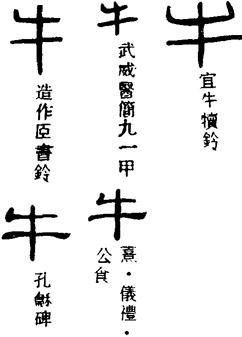 牛
宜牛犢鈴
牛
武威醫簡九一甲
牛
造作臣書鈴
牛
熹·儀禮·
公食
牛
孔龢碑